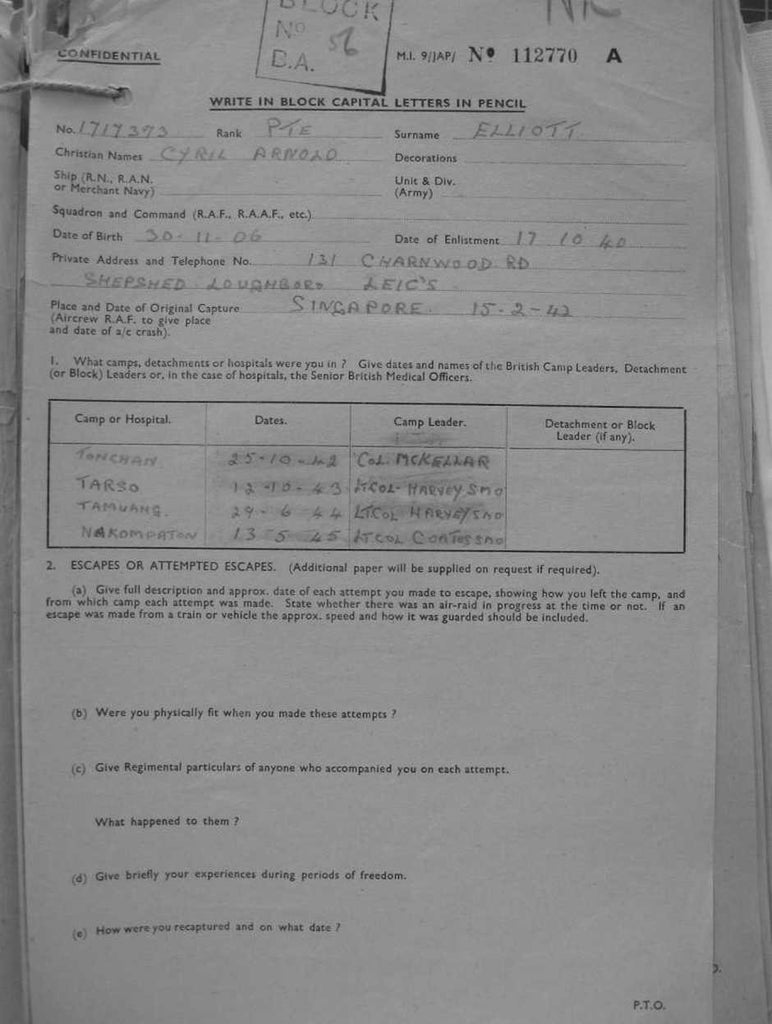 BLOCK
Nº 56
B.A.
NR
CONFIDENTIAL
M.I. 9/JAP/ Nº 112770 A
WRITE IN BLOCK CAPITAL LETTERS IN PENCIL
No. 1717393 Rank PTE Surname ELLIOTT
Christian Names CYRIL ARNOLD Decorations
Ship (R.N., R.A.N. or Merchant Navy) Unit & Div. (Army)
Squadron and Command (R.A.F., R.A.A.F., etc.)
Date of Birth 30-11-06 Date of Enlistment 17 10 40
Private Address and Telephone No. 131 CHARNWOOD RD
SHEPSHED LOUGHBORO LEIC'S
Place and Date of Original Capture SINGAPORE 15-2-42
(Aircrew R.A.F. to give place
and date of a/c crash).
1. What camps, detachments or hospitals were you in ? Give dates and names of the British Camp Leaders, Detachment
(or Block) Leaders or, in the case of hospitals, the Senior British Medical Officers.
Camp or Hospital. Dates. Camp Leader. Detachment or Block Leader (if any).
TONCHAN 25-10-42 COL. MCKELLAR
TARSO 12-10-43 LTCOL- HARVEY SMO
TAMUANG. 29-6 44 LTCOL HARVEY SMO
NAKOMPATON 13 5 45 LTCOL COATES SMO
2. ESCAPES OR ATTEMPTED ESCAPES. (Additional paper will be supplied on request if required).
(a) Give full description and approx. date of each attempt you made to escape, showing how you left the camp, and
from which camp each attempt was made. State whether there was an air-raid in progress at the time or not. If an
escape was made from a train or vehicle the approx. speed and how it was guarded should be included.
(b) Were you physically fit when you made these attempts ?
(c) Give Regimental particulars of anyone who accompanied you on each attempt.
What happened to them ?
(d) Give briefly your experiences during periods of freedom.
(e) How were you recaptured and on what date ?
P.T.O.